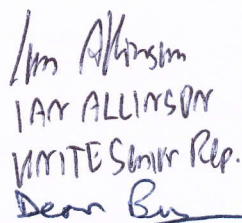 Ian Allinson
IAN ALLINSON
UNITE Senior Rep.